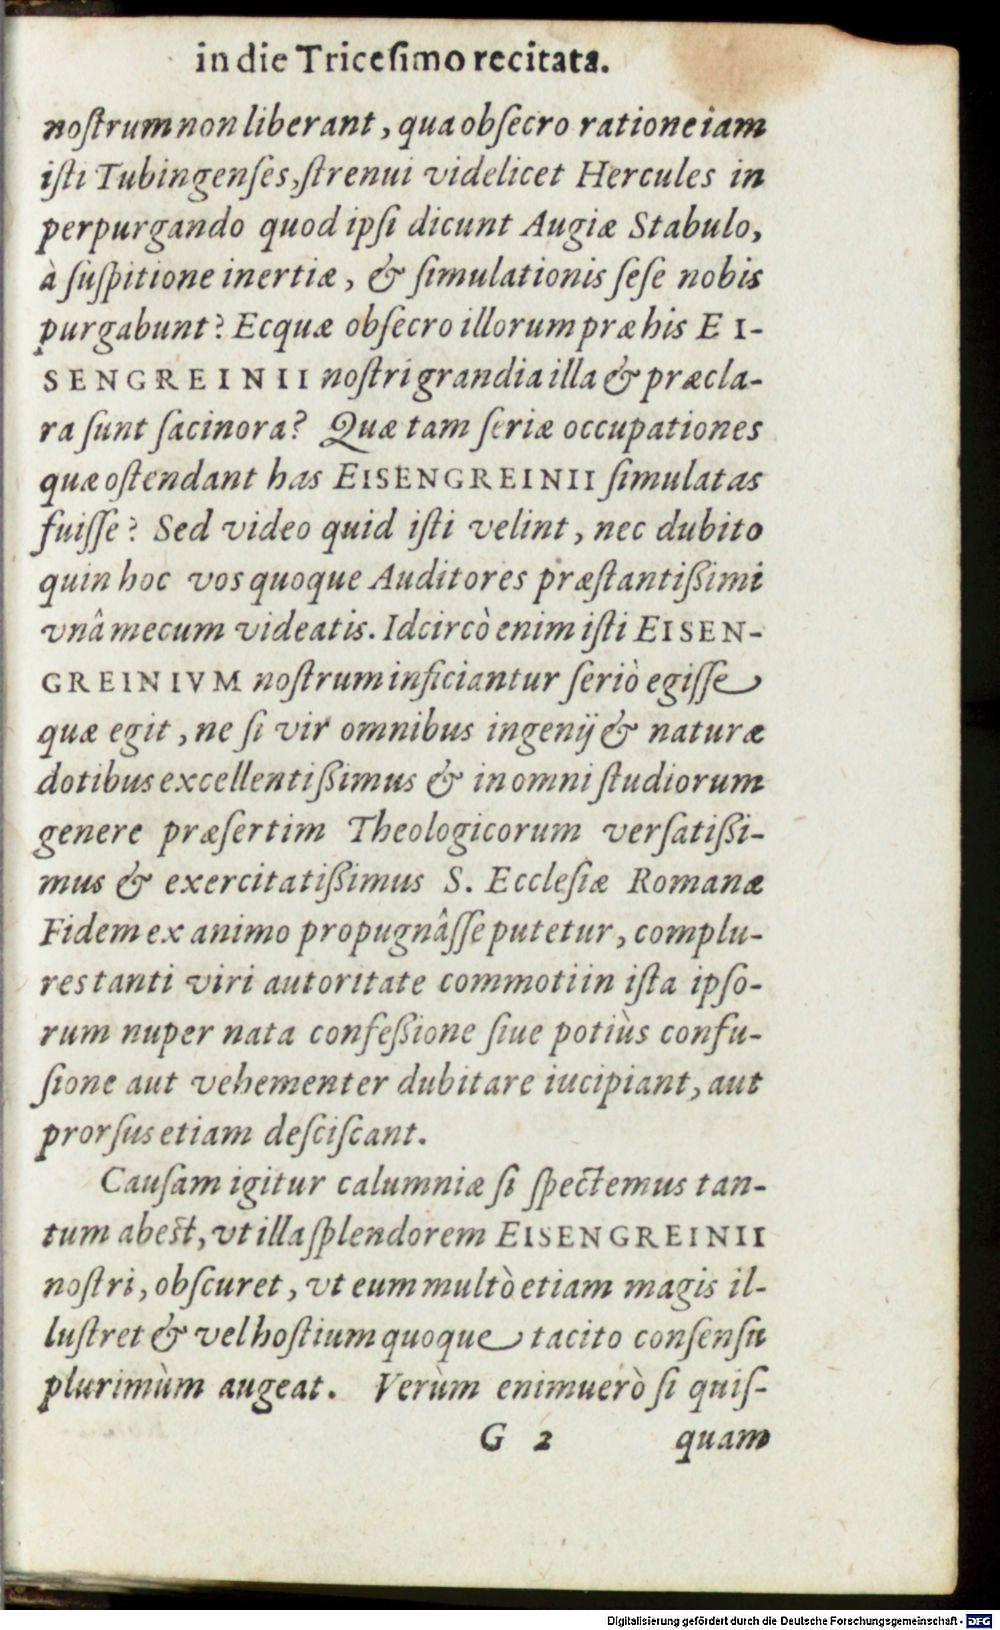 in die Triceſimo recitata.
noſtrum non liberant, qua obſecro ratione iam
iſti Tubingenſes, ſtrenui videlicet Hercules in
perpurgando quod ipſi dicunt Augiæ Stabulo,
à ſuſpitione inertiæ, & ſimulationis ſeſe nobis
purgabunt? Ecquæ obſecro illorum præ his EI-
SENGREINII noſtri grandia illa & præcla-
ra ſunt facinora? Quæ tam ſeriæ occupationes
quæ oſtendant has EISENGREINII ſimulatas
fuiſſe? Sed video quid iſti velint, nec dubito
quin hoc vos quoque Auditores præſtantißimi
vnâ mecum videatis. Idcircò enim iſti EISEN-
GREINIVM noſtrum inficiantur ſeriò egiſſe
quæ egit, ne ſi vir omnibus ingenij & naturæ
dotibus excellentißimus & in omni ſtudiorum
genere præſertim Theologicorum verſatißi-
mus & exercitatißimus S. Eccleſiæ Romanæ
Fidem ex animo propugnâſſe putetur, complu-
res tanti viri autoritate commoti in iſta ipſo-
rum nuper nata confeßione ſiue potiùs confu-
ſione aut vehementer dubitare iucipiant, aut
prorſus etiam deſciſcant.
Cauſam igitur calumniæ ſi ſpectemus tan-
tum abeſt, vt illa ſplendorem EISENGREINII
noſtri, obſcuret, vt eum multò etiam magis il-
luſtret & vel hoſtium quoque tacito conſenſu
plurimùm augeat. Verùm enimuerò ſi quiſ-
G 2 quam
Digitalisierung gefördert durch die Deutsche Forschungsgemeinschaft - DFG